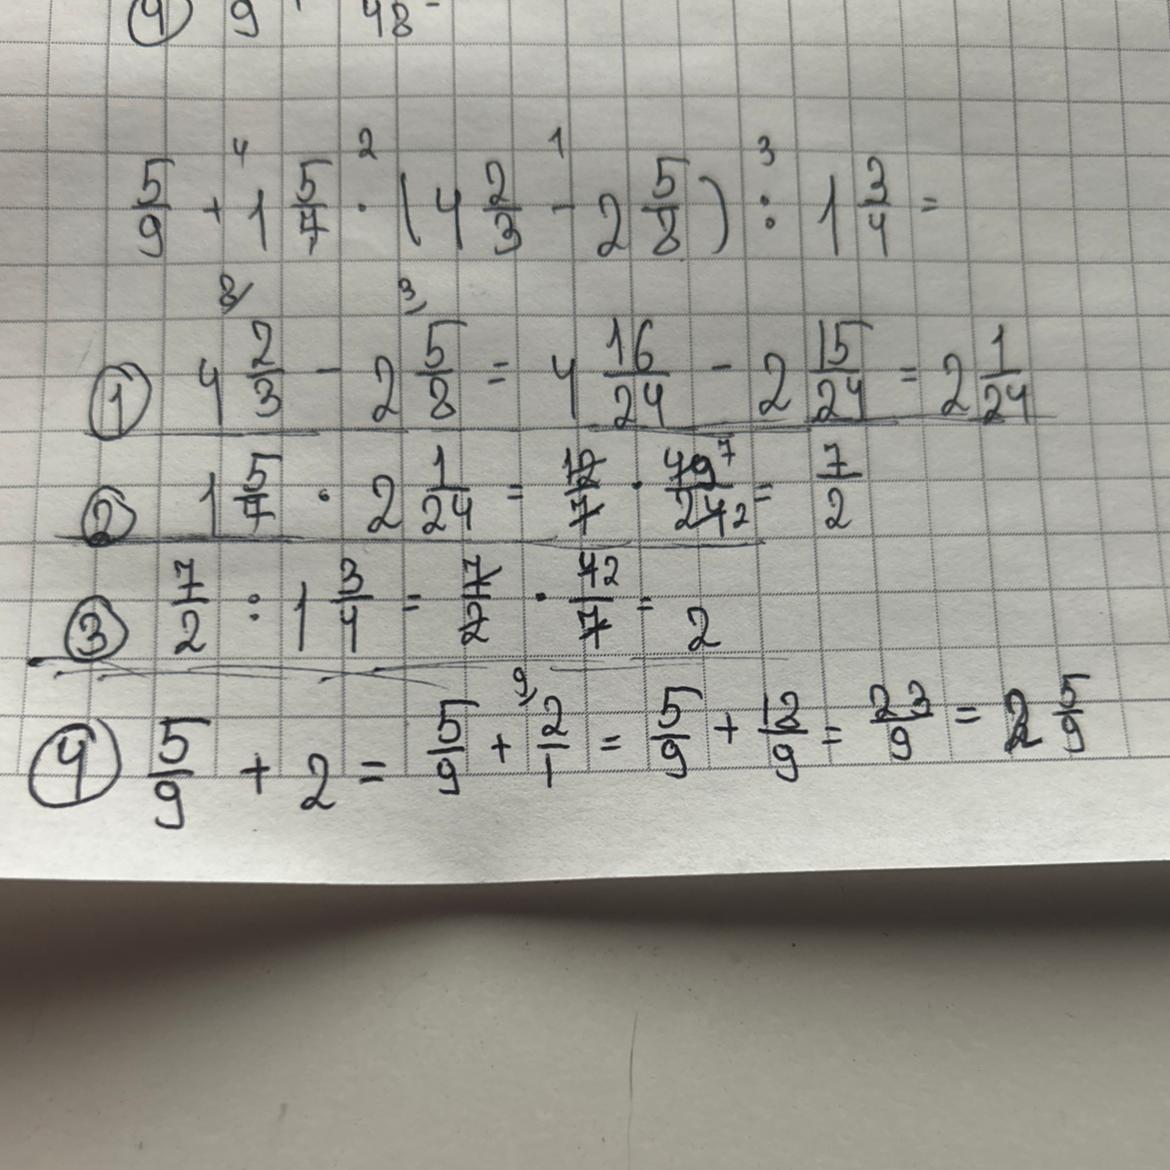 ④ 9 48
5/9 + 1 5/7 · (4 2/3 - 2 5/8) : 1 3/4 =
① 4 2/3 - 2 5/8 = 4 16/24 - 2 15/24 = 2 1/24
② 1 5/7 · 2 1/24 = 12/7 · 49 7/24 2 = 7/2
③ 7/2 : 1 3/4 = 7/2 · 4 2/7 = 2
④ 5/9 + 2 = 5/9 + 2/1 = 5/9 + 18/9 = 23/9 = 2 5/9